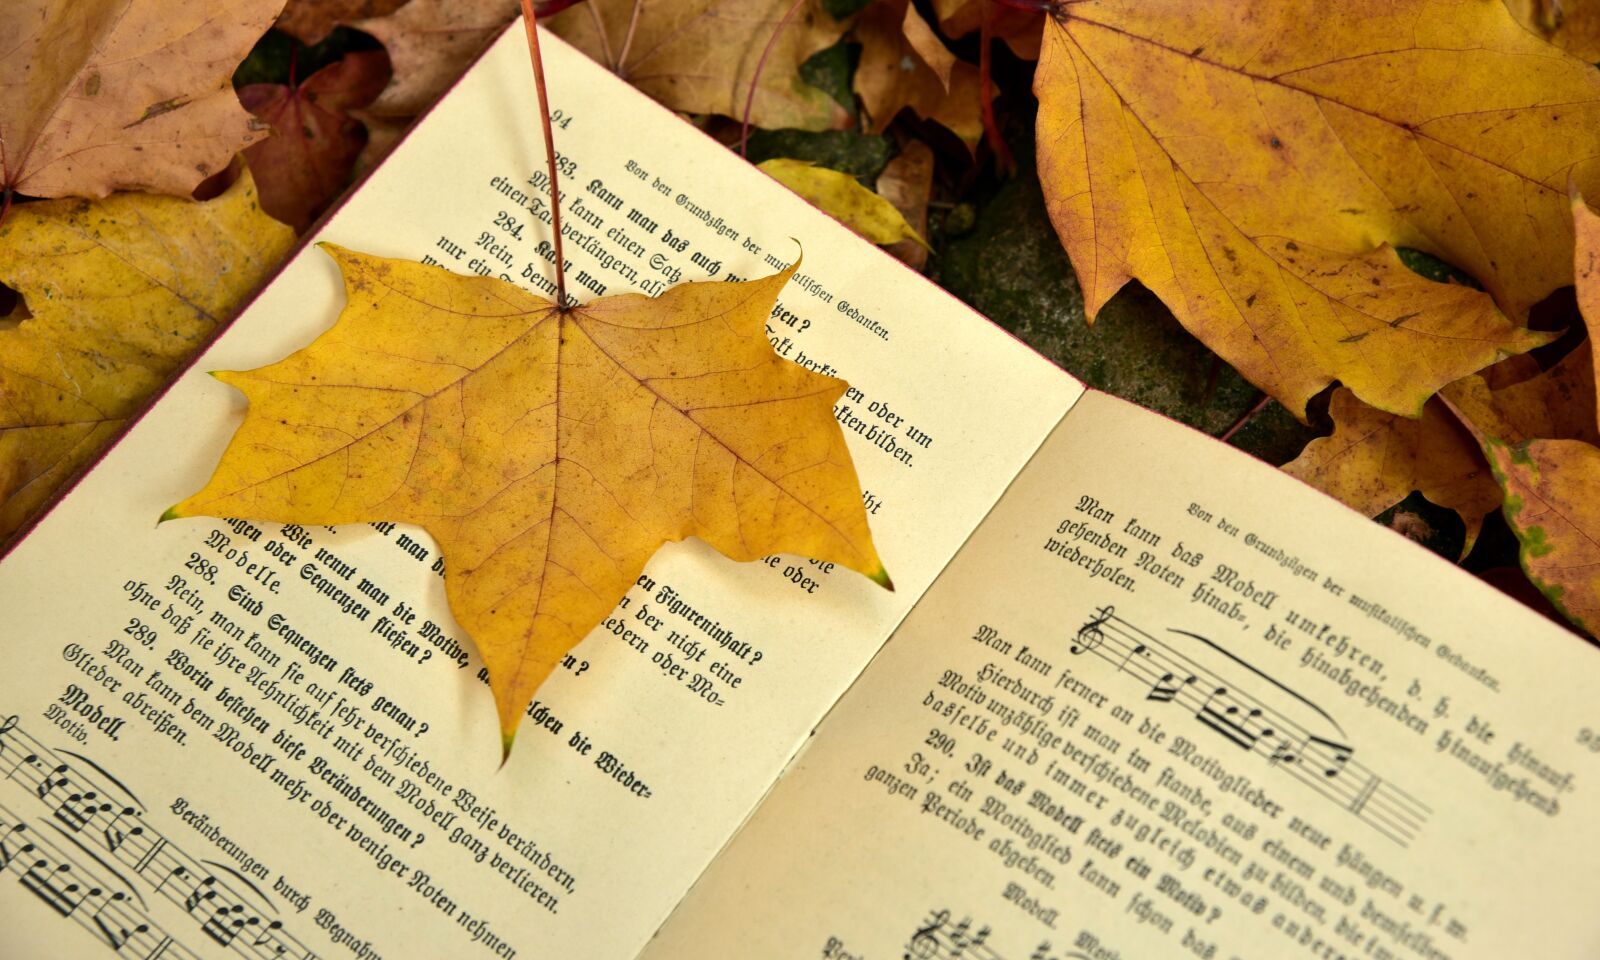 94
Von den Grundzügen der musikalischen Gedanken.
283. Kann man das auch mi
tzen?
Man kann einen Satz
Takt verkürzen oder um
einen Takt verlängern, all
akten bilden.
284. Kann man
Nein, denn
nur ein
ibt
nnt man di
en Figureninhalt?
Wie nennt man die Motive, a
n der nicht eine
ngen oder Sequenzen fließen?
iedern oder Mo-
Modelle.
lchen die Wieder-
288. Sind Sequenzen stets genau?
Nein, man kann sie auf sehr verschiedene Weise verändern,
ohne daß sie ihre Aehnlichkeit mit dem Modell ganz verlieren.
289. Worin bestehen diese Veränderungen?
Man kann dem Modell mehr oder weniger Noten nehmen
Glieder abreißen.
Modell.
Motiv.
Veränderungen durch Wegnahm
Von den Grundzügen der musikalischen Gedanken.
95
Man kann das Modell umkehren, d. h. die hinauf-
gehenden Noten hinab-, die hinabgehenden hinaufgehend
wiederholen.
Man kann ferner an die Motivglieder neue hängen u. s. w.
Hierdurch ist man im stande, aus einem und demselben
Motiv unzählige verschiedene Melodien zu bilden, die im
dasselbe und immer zugleich etwas andere
290. Ist das Modell stets ein Motiv?
Ja; ein Motivglied kann schon das
ganzen Periode abgeben.
Modell.
Moti
Peri